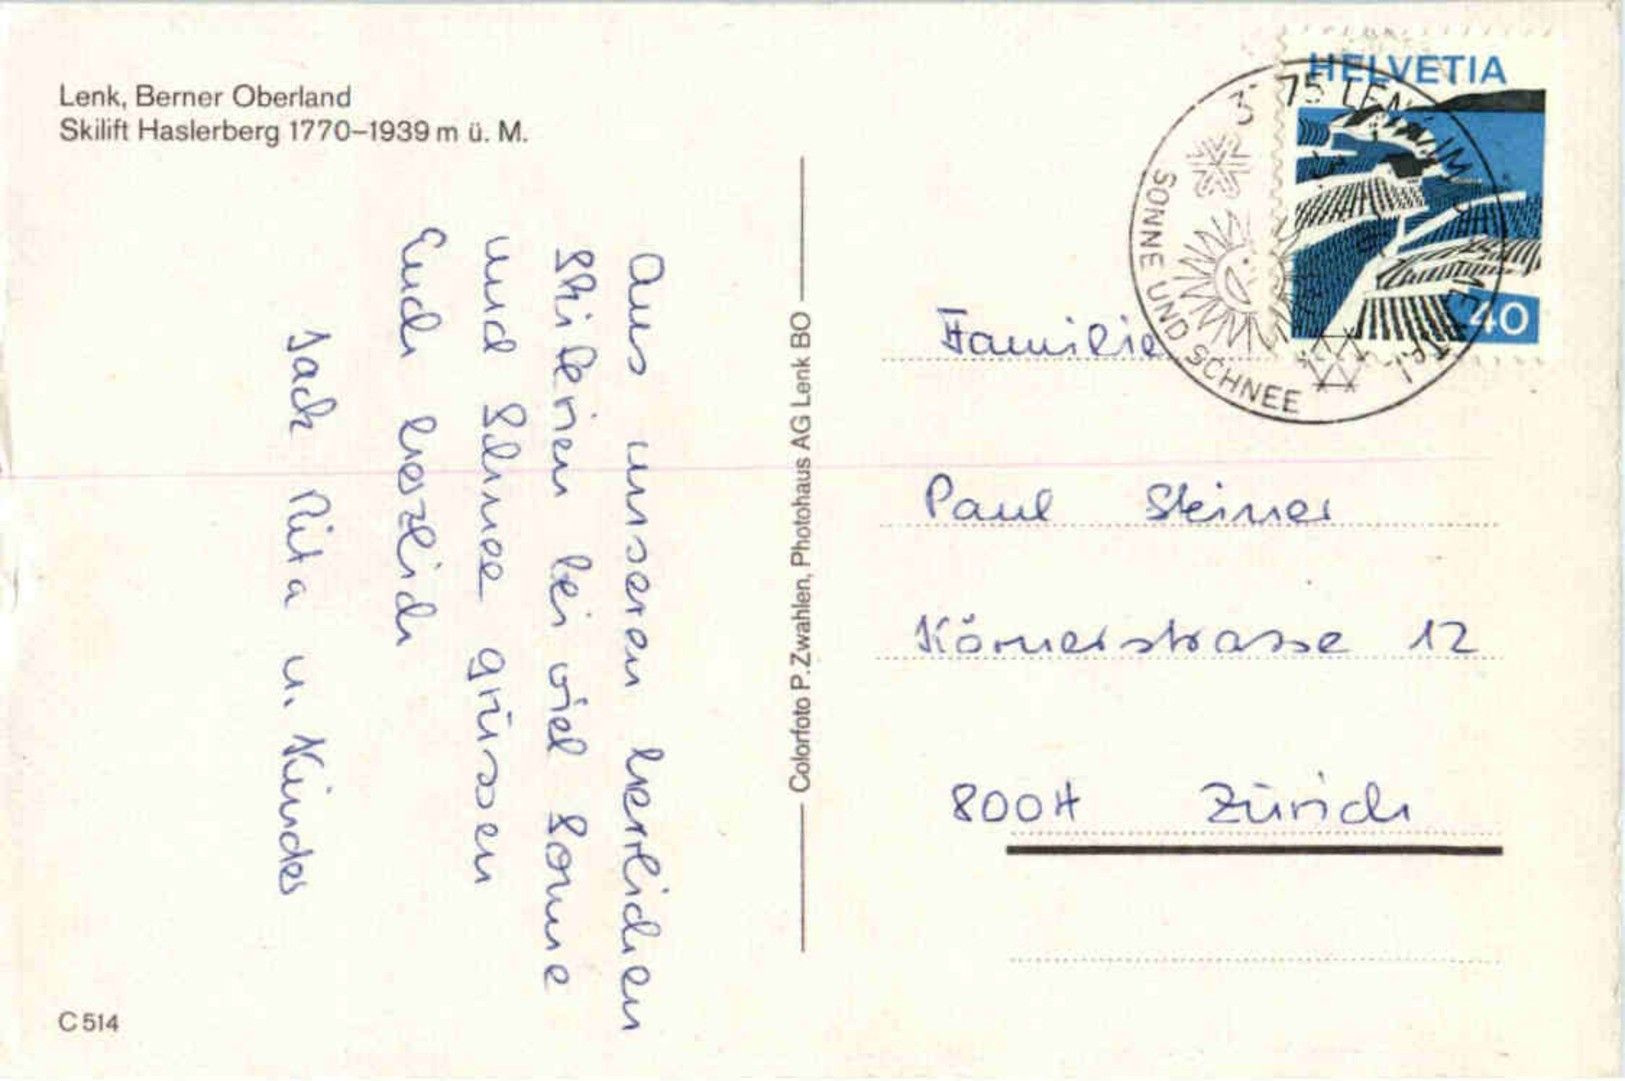 Lenk, Berner Oberland
Skilift Haslerberg 1770–1939 m ü. M.
Aus unseren herrlichen
Skiferien bei viel Sonne
und Schnee grüssen
Euch herzlich
Jack Rita u. Kinder
C 514
Colorfoto P. Zwahlen, Photohaus AG Lenk BO
HELVETIA
40
3775 LENK IM SIMMENTAL
SONNE UND SCHNEE
Familie
Paul Steiner
Körnerstrasse 12
8004 Zürich